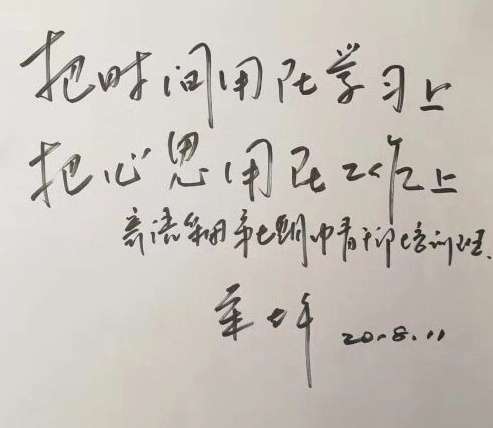 把时间用在学习上
把心思用在工作上
寄语集团第七期中青干部培训班.
20.8.11